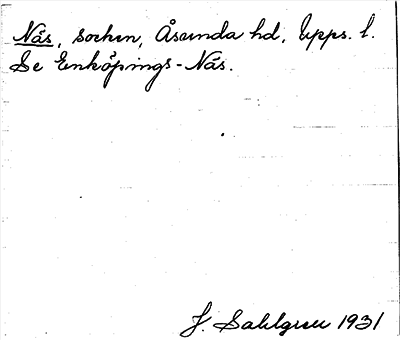 Näs, socken, Åsunda hd, Upps. l.
Se Enköpings-Näs.
J. Sahlgren 1931